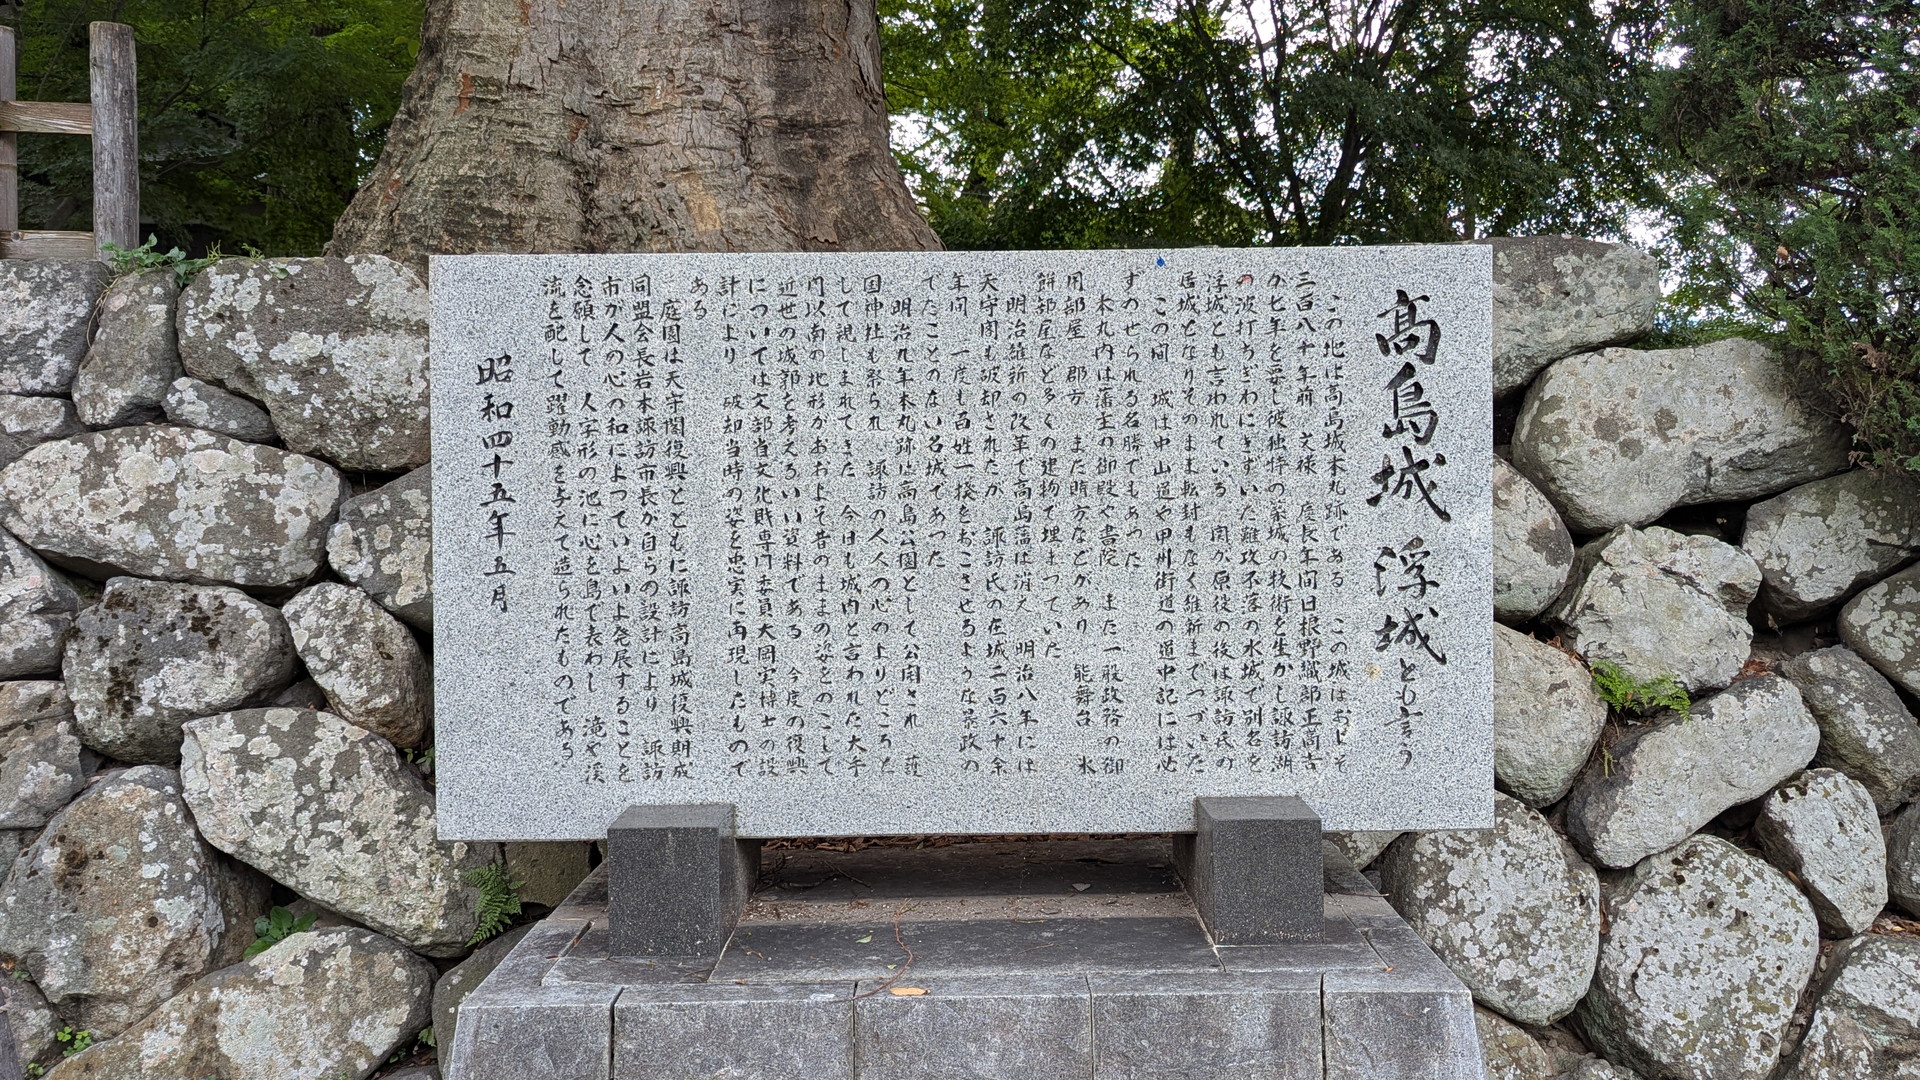 高島城 浮城とも言う
この地は高島城本丸跡である この城はおよそ
三百八十年前 文禄 慶長年間日根野織部正高吉
が七年を要し彼独特の築城の技術を生かし諏訪湖
の波打ちぎわにきずいた難攻不落の水城で別名を
浮城とも言われている 関が原役の後は諏訪氏の
居城となりそのまま転封もなく維新までつづいた
この間 城は中山道や甲州街道の道中記には必
ずのせられる名勝でもあった
本丸内は藩主の御殿や書院 また一般政務の御
用部屋 郡方 また時方などがあり 能舞台 氷
餅部屋など多くの建物で埋まつていた
明治維新の改革で高島藩は消え 明治八年には
天守閣も破却されたが 諏訪氏の在城二百六十余
年間 一度も百姓一揆をおこさせるような悪政の
でたことのない名城であった
明治九年本丸跡は高島公園として公開され 護
国神社も祭られ 諏訪の人人の心のよりどころと
して親しまれてきた 今日も城内と言われた大手
門以南の地形がおおよそ昔のままの姿をのこして
近世の城郭を考えるいい資料である 今度の復興
については文部省文化財専門委員大岡実博士の設
計により 破却当時の姿を忠実に再現したもので
ある
庭園は天守閣復興とともに諏訪高島城復興期成
同盟会長岩本諏訪市長が自らの設計により 諏訪
市が人の心の和によつていよいよ発展することを
念願して 人字形の池に心を島で表わし 滝や渓
流を配して躍動感を与えて造られたものである
昭和四十五年五月